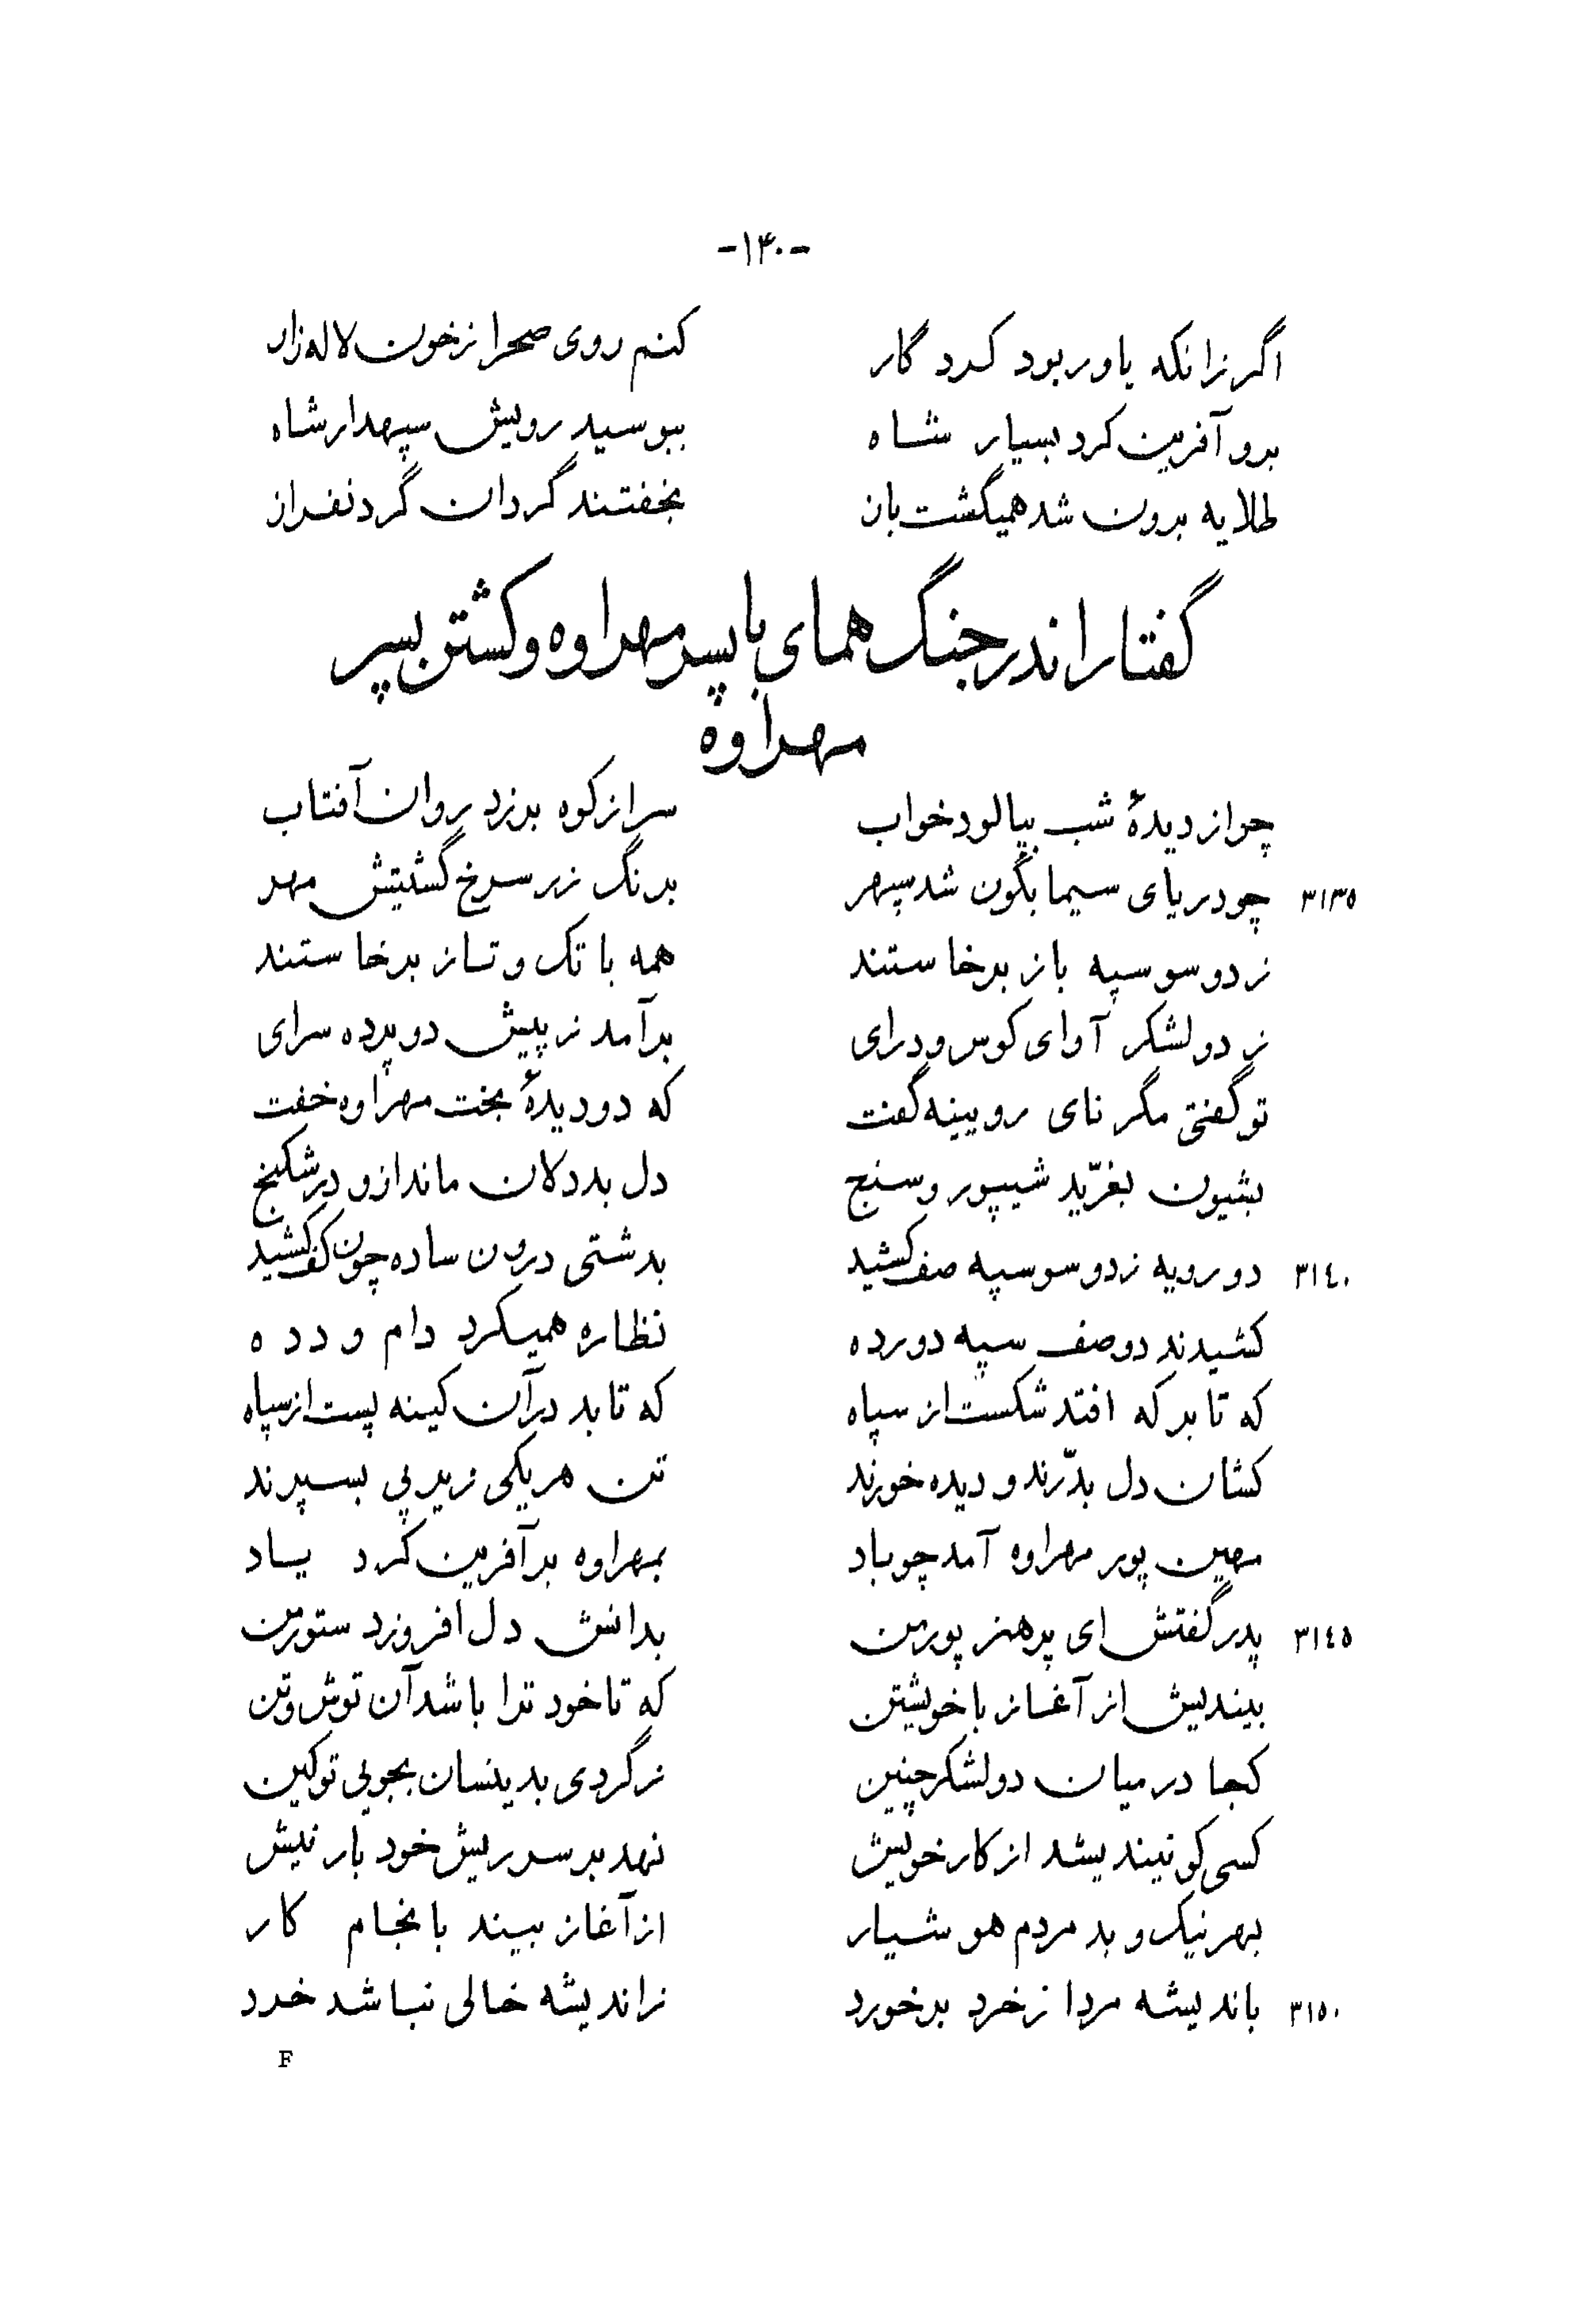 -۱۴۰-
اگر زانکه یاور بود کردگار کنم روی صحرا ز خون لاله‌زار
برو آفرین کرد بسیار شاه ببوسید رویش سپهدار شاه
طلایه برون شد همیگشت باز بخفتند گردان گردنفراز
گفتار اندر جنگ همای با پسر مهراوه و کشتن پسر
مهراوه
چو از دیدهٔ شب بپالود خواب سر از کوه برزد روان آفتاب
۳۱۳۵ چو دریای سیمابگون شد سپهر برنگ زر سرخ گشتیش مهر
ز دو سو سپه باز برخاستند همه با تک و تاز برخاستند
ز دو لشکر آوای کوس و درای برآمد ز پیش دو پرده سرای
تو گفتی مگر نای رویینه گفت که دو دیدهٔ بخت مهراوه خفت
بشیون بغرّید شیپور و سنج دل بددلان ماند ازو در شکنج
۳۱٤۰ دو رویه ز دو سو سپه صف کشید بدشتی درون ساده چون کف کشید
کشیدند دو صف سپه دو رده نظاره همیکرد دام و دده
که تا بر که افتد شکست از سپاه که تا بد در آن کینه پست از سپاه
کشان دل بدّرند و دیده خورند تن هر یکی زیر پی بسپرند
مهین پور مهراوه آمد چو باد بمهراوه بر آفرین کرد یاد
۳۱٤۵ پدر گفتش ای پر هنر پور من بدانش دل افروزد ستور من
بیندیش از آغاز با خویشتن که تا خود ترا باشد آن توش و تن
کجا در میان دو لشکر چنین ز گردی بدینسان بجویی تو کین
کسی کو نیندیشد از کار خویش نهد بر سر ریش خود بار نیش
بهر نیک و بد مردم هوشیار از آغاز بیند بانجام کار
۳۱۵۰ باندیشه مرد از خرد برخورد ز اندیشه خالی نباشد خرد
F